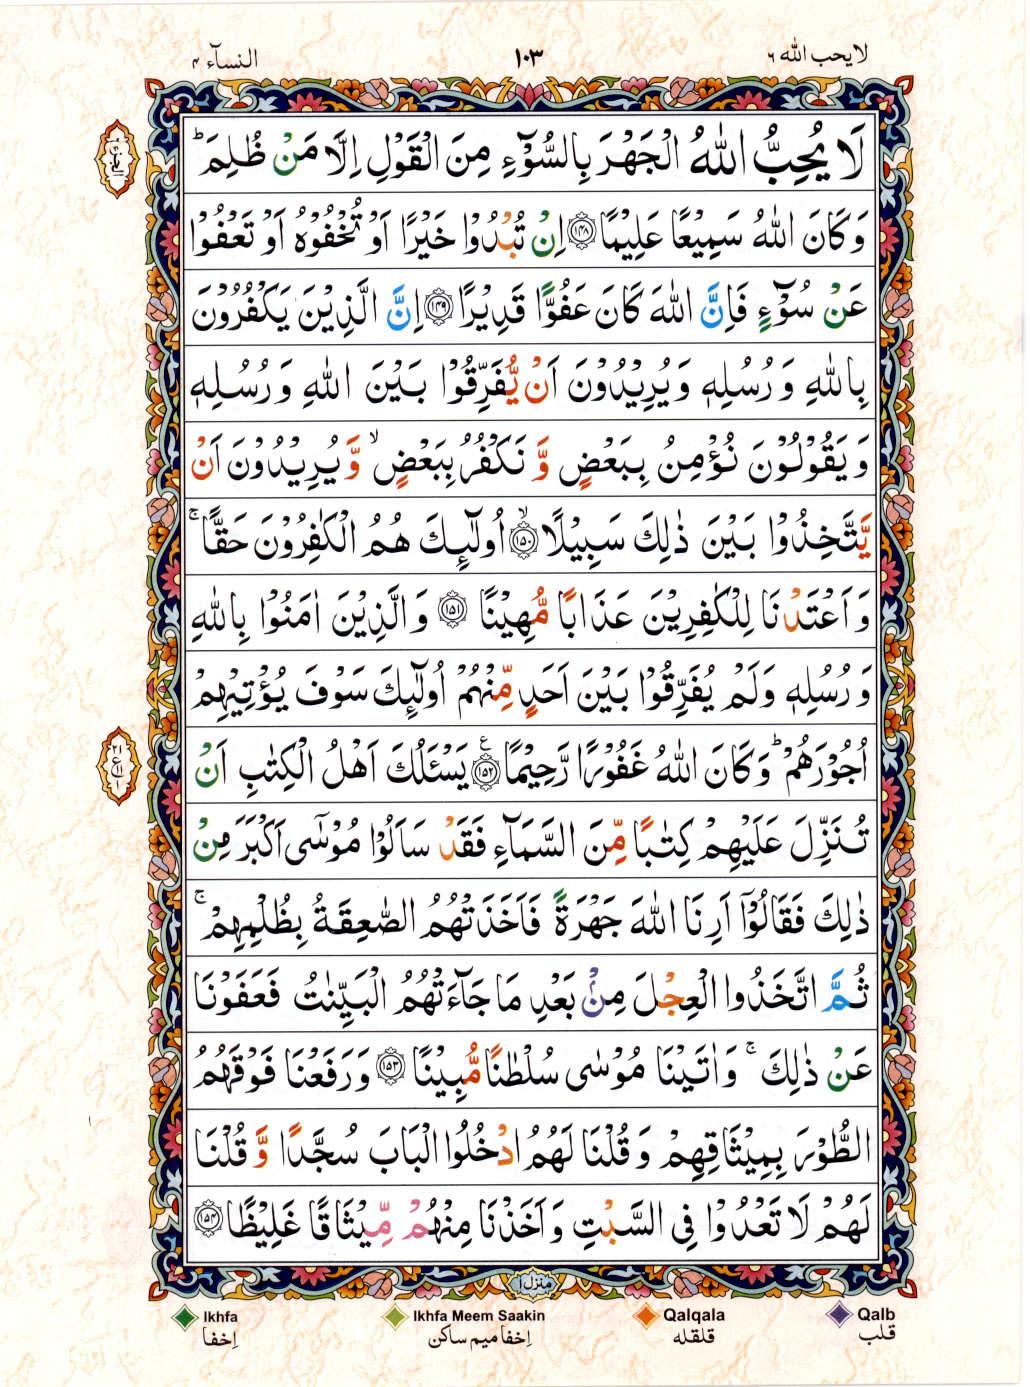 لا يحب الله ٦
١٠٣
النسآء ٤
لَا يُحِبُّ اللّٰهُ الْجَهْرَ بِالسُّوْٓءِ مِنَ الْقَوْلِ اِلَّا مَنْ ظُلِمَ ؕ
وَ كَانَ اللّٰهُ سَمِيْعًا عَلِيْمًا ﴿١٤٨﴾ اِنْ تُبْدُوْا خَيْرًا اَوْ تُخْفُوْهُ اَوْ تَعْفُوْا
عَنْ سُوْٓءٍ فَاِنَّ اللّٰهَ كَانَ عَفُوًّا قَدِيْرًا ﴿١٤٩﴾ اِنَّ الَّذِيْنَ يَكْفُرُوْنَ
بِاللّٰهِ وَ رُسُلِهٖ وَ يُرِيْدُوْنَ اَنْ يُّفَرِّقُوْا بَيْنَ اللّٰهِ وَ رُسُلِهٖ
وَ يَقُوْلُوْنَ نُؤْمِنُ بِبَعْضٍ وَّ نَكْفُرُ بِبَعْضٍ ۙ وَّ يُرِيْدُوْنَ اَنْ
يَّتَّخِذُوْا بَيْنَ ذٰلِكَ سَبِيْلًا ۙ﴿١٥٠﴾ اُولٰٓئِكَ هُمُ الْكٰفِرُوْنَ حَقًّا ۚ
وَ اَعْتَدْنَا لِلْكٰفِرِيْنَ عَذَابًا مُّهِيْنًا ﴿١٥١﴾ وَ الَّذِيْنَ اٰمَنُوْا بِاللّٰهِ
وَ رُسُلِهٖ وَ لَمْ يُفَرِّقُوْا بَيْنَ اَحَدٍ مِّنْهُمْ اُولٰٓئِكَ سَوْفَ يُؤْتِيْهِمْ
اُجُوْرَهُمْ ؕ وَ كَانَ اللّٰهُ غَفُوْرًا رَّحِيْمًا ﴿١٥٢﴾ ع يَسْـَٔلُكَ اَهْلُ الْكِتٰبِ اَنْ
تُنَزِّلَ عَلَيْهِمْ كِتٰبًا مِّنَ السَّمَآءِ فَقَدْ سَاَلُوْا مُوْسٰٓى اَكْبَرَ مِنْ
ذٰلِكَ فَقَالُوْٓا اَرِنَا اللّٰهَ جَهْرَةً فَاَخَذَتْهُمُ الصّٰعِقَةُ بِظُلْمِهِمْ ۚ
ثُمَّ اتَّخَذُوا الْعِجْلَ مِنْۢ بَعْدِ مَا جَآءَتْهُمُ الْبَيِّنٰتُ فَعَفَوْنَا
عَنْ ذٰلِكَ ۚ وَ اٰتَيْنَا مُوْسٰى سُلْطٰنًا مُّبِيْنًا ﴿١٥٣﴾ وَ رَفَعْنَا فَوْقَهُمُ
الطُّوْرَ بِمِيْثَاقِهِمْ وَ قُلْنَا لَهُمُ ادْخُلُوا الْبَابَ سُجَّدًا وَّ قُلْنَا
لَهُمْ لَا تَعْدُوْا فِى السَّبْتِ وَ اَخَذْنَا مِنْهُمْ مِّيْثَاقًا غَلِيْظًا ﴿١٥٤﴾
منزل ١
Ikhfa Ikhfa Meem Saakin Qalqala Qalb
اِخفا اِخفا میم ساکن قلقله قلب